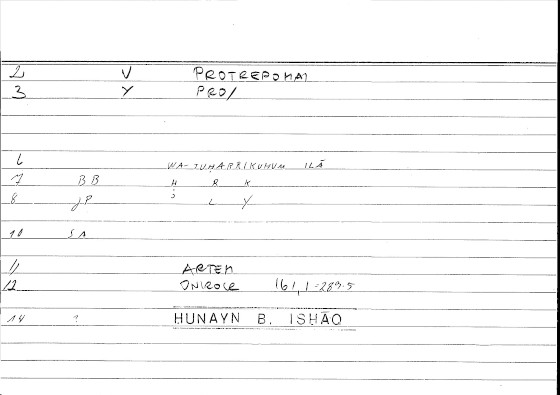 2 V PROTREPOMAI
3 Y PRO/
6 WA-TUḤARRIKUHUM ILĀ
7 BB Ḥ R K
8 JP I L Y
10 SA
11 ARTEM
12 ONIROCR 161,1=289.5
14 ? HUNAYN B. ISḤĀQ